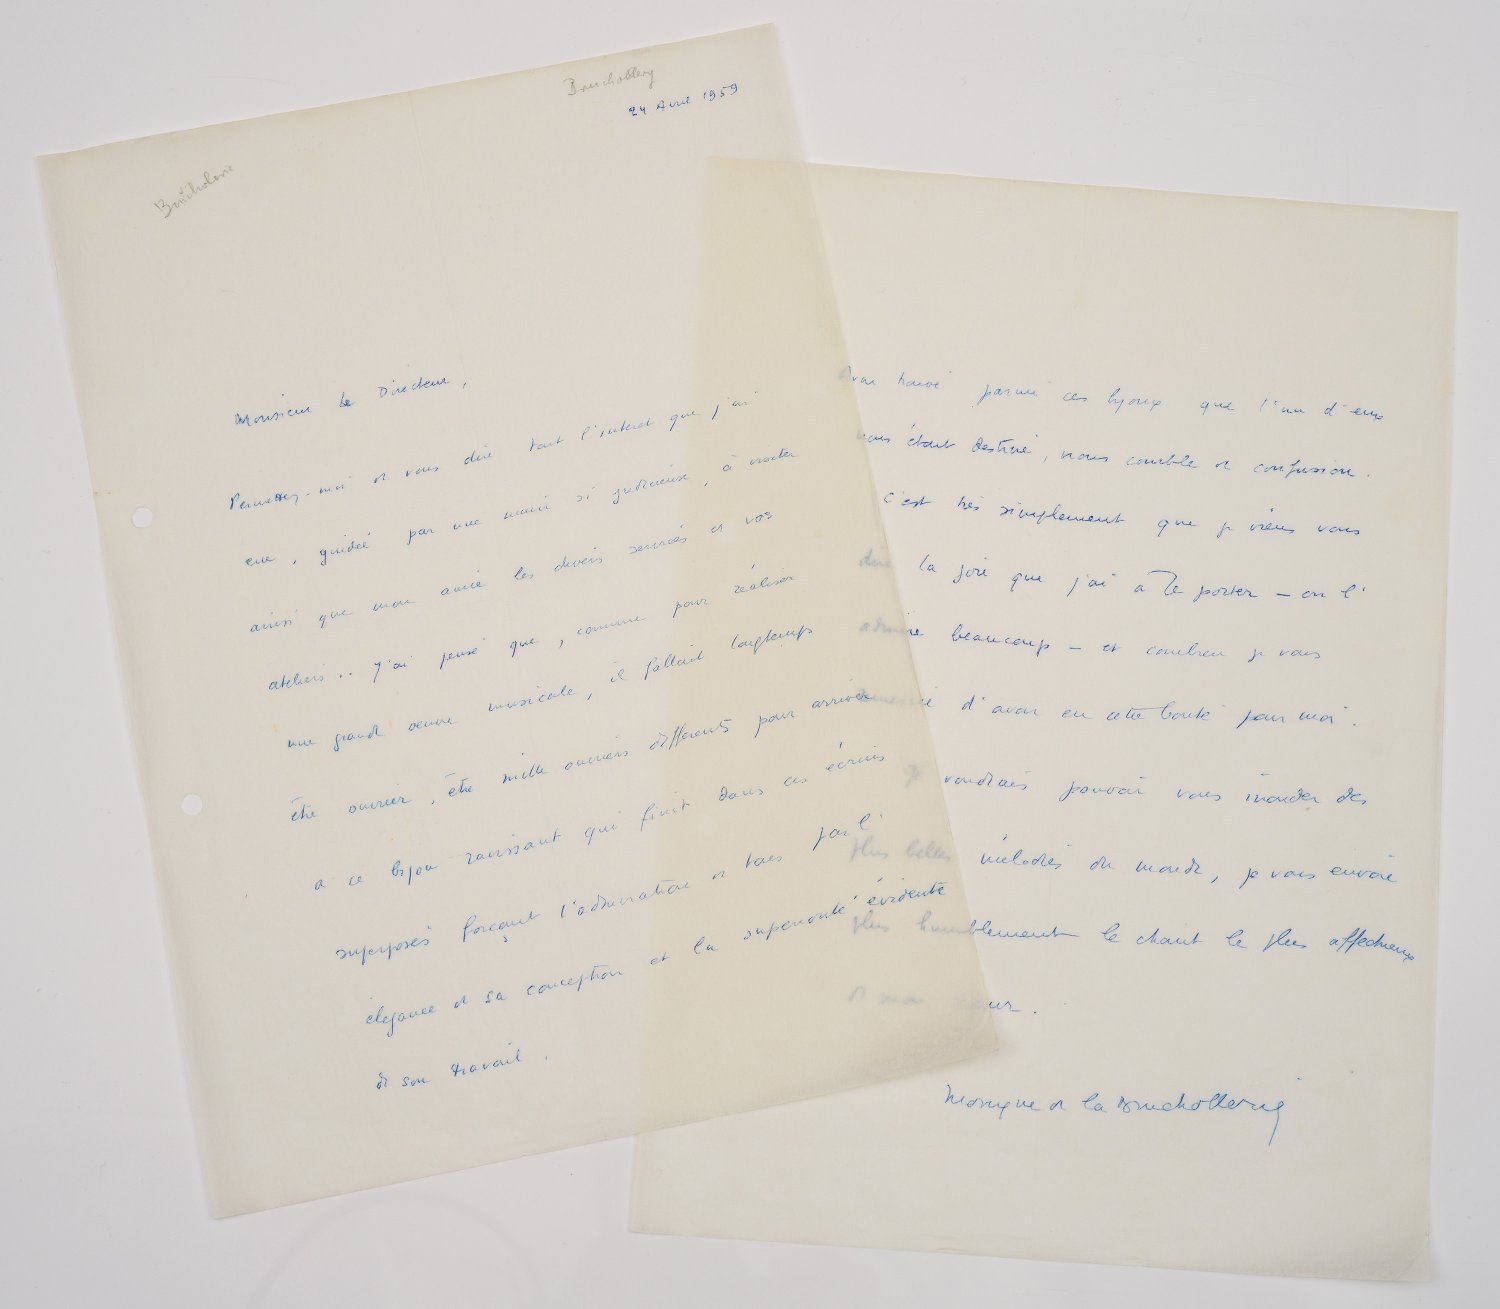 Bruchollerie
Bruchollery
24 Avril 1959
Monsieur le Directeur,
Permettez-moi de vous dire tout l'intérêt que j'ai
eue, guidée par une main si judicieuse, à visiter
ainsi que mon amie les divers services et vos
ateliers.. J'ai pensé que, comme pour réaliser
une grande oeuvre musicale, il fallait longtemps
être ouvrier, être mille ouvriers différents pour arriver
à ce bijou ravissant qui finit dans ces écrins
superposés forçant l'admiration de tous par l'
élégance de sa conception et la supériorité évidente
de son travail.
Avoir trouvé parmi ces bijoux que l'un d'eux
nous était destiné, nous comble de confusion.
C'est très simplement que je viens vous
dire la joie que j'ai à le porter - on l'
admire beaucoup - et combien je vous
remercie d'avoir eu cette bonté pour moi.
Je voudrais pouvoir vous inonder des
plus belles mélodies du monde, je vous envoie
plus humblement le chant le plus affectueux
de mon coeur.
Monique de la Bruchollerie